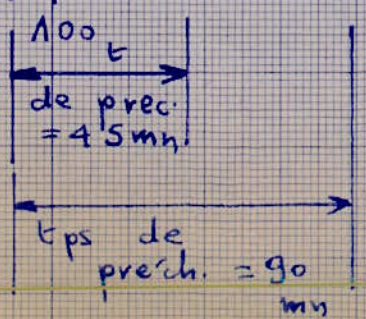 100
t
de prec.
= 45mn.
tps de
prech. = 90
mn